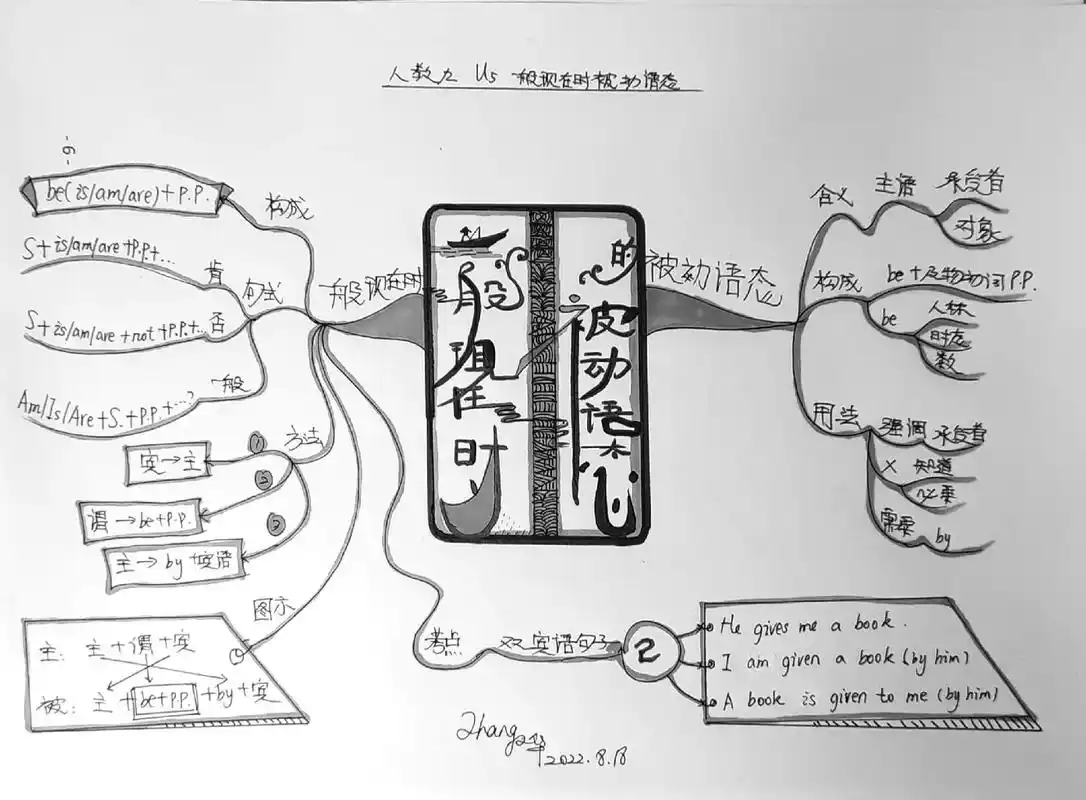 人教九 U5 一般现在时被动语态
一般现在时
的
被动语态
一般现在时
构成
be(is/am/are)+P.P.
句式
肯
S+is/am/are+P.P.+...
否
S+is/am/are+not+P.P.+...
一般
Am/Is/Are+S.+P.P.+...?
方法
①
宾→主
②
谓→be+P.P.
③
主→by+宾语
图示
主: 主+谓+宾
被: 主+be+P.P.+by+宾
考点
双宾语句子
2
He gives me a book.
I am given a book (by him)
A book is given to me (by him)
被动语态
含义
主语
承受者
对象
构成
be+及物动词P.P.
be
人称
时态
数
用法
强调 承受者
× 知道
必要
需要 by
Zhang
2022.8.18